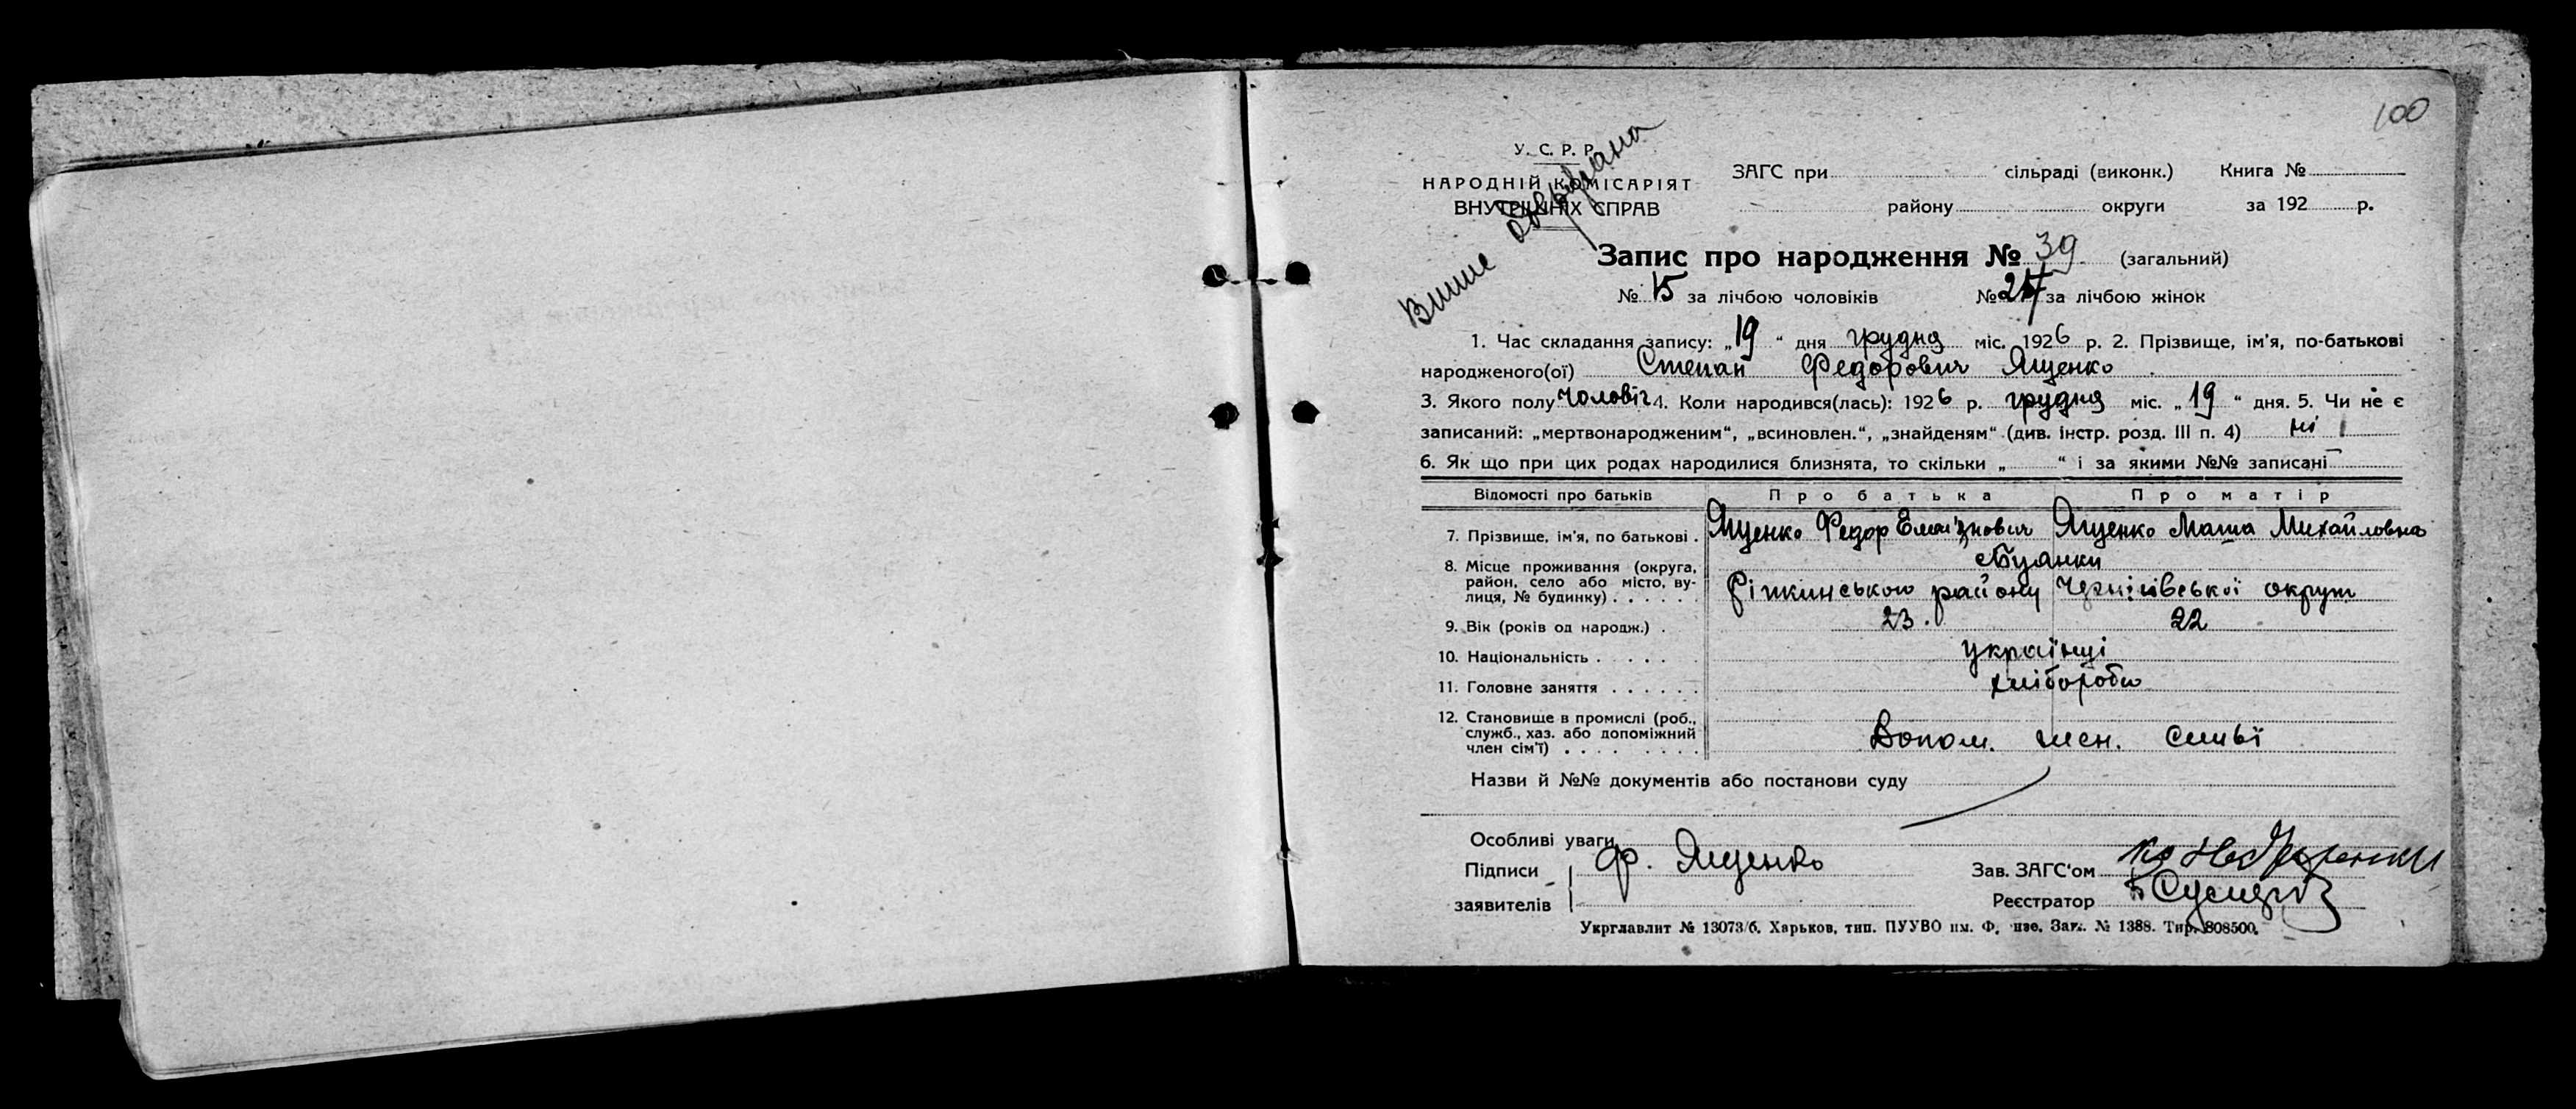 100
У. С. Р. Р.
НАРОДНІЙ КОМІСАРІЯТ
ВНУТРІШНІХ СПРАВ
ЗАГС при сільраді (виконк.) Книга №
району округи за 192 р.
Запис про народження № 39 (загальний)
№ 15 за лічбою чоловіків № за лічбою жінок
1. Час складання запису: „19“ дня грудня міс. 1926 р. 2. Прізвище, ім'я, по-батькові
народженого(ої) Степан Федорович Ященко
3. Якого полу чоловіч 4. Коли народився(лась): 1926 р. грудня міс. „19“ дня. 5. Чи не є
записаний: „мертвонародженим“, „всиновлен.“, „знайденям“ (див. інстр. розд. III п. 4) ні
6. Як що при цих родах народилися близнята, то скільки „ “ і за якими №№ записані
Відомості про батьків Про батька Про матір
7. Прізвище, ім'я, по батькові . Ященко Федор Ященко Маша Михайловна
8. Місце проживання (округа, район, село або місто, вулиця, № будинку) . . . . .
Ріпкинського району Чернігівської округи
9. Вік (років од народж.) . 23. 22
10. Національність . . . . . українці
11. Головне заняття . . . . . . хлібороби
12. Становище в промислі (роб., служб., хаз. або допоміжний член сім'ї) . . . . . . . .
член.
Назви й №№ документів або постанови суду
Особливі уваги
Підписи Ф. Ященко Зав. ЗАГС'ом
заявителів Реєстратор
Укрглавлит № 13073/б. Харьков, тип. ПУУВО им. Ф. Зак. № 1388. Тир. 808500.